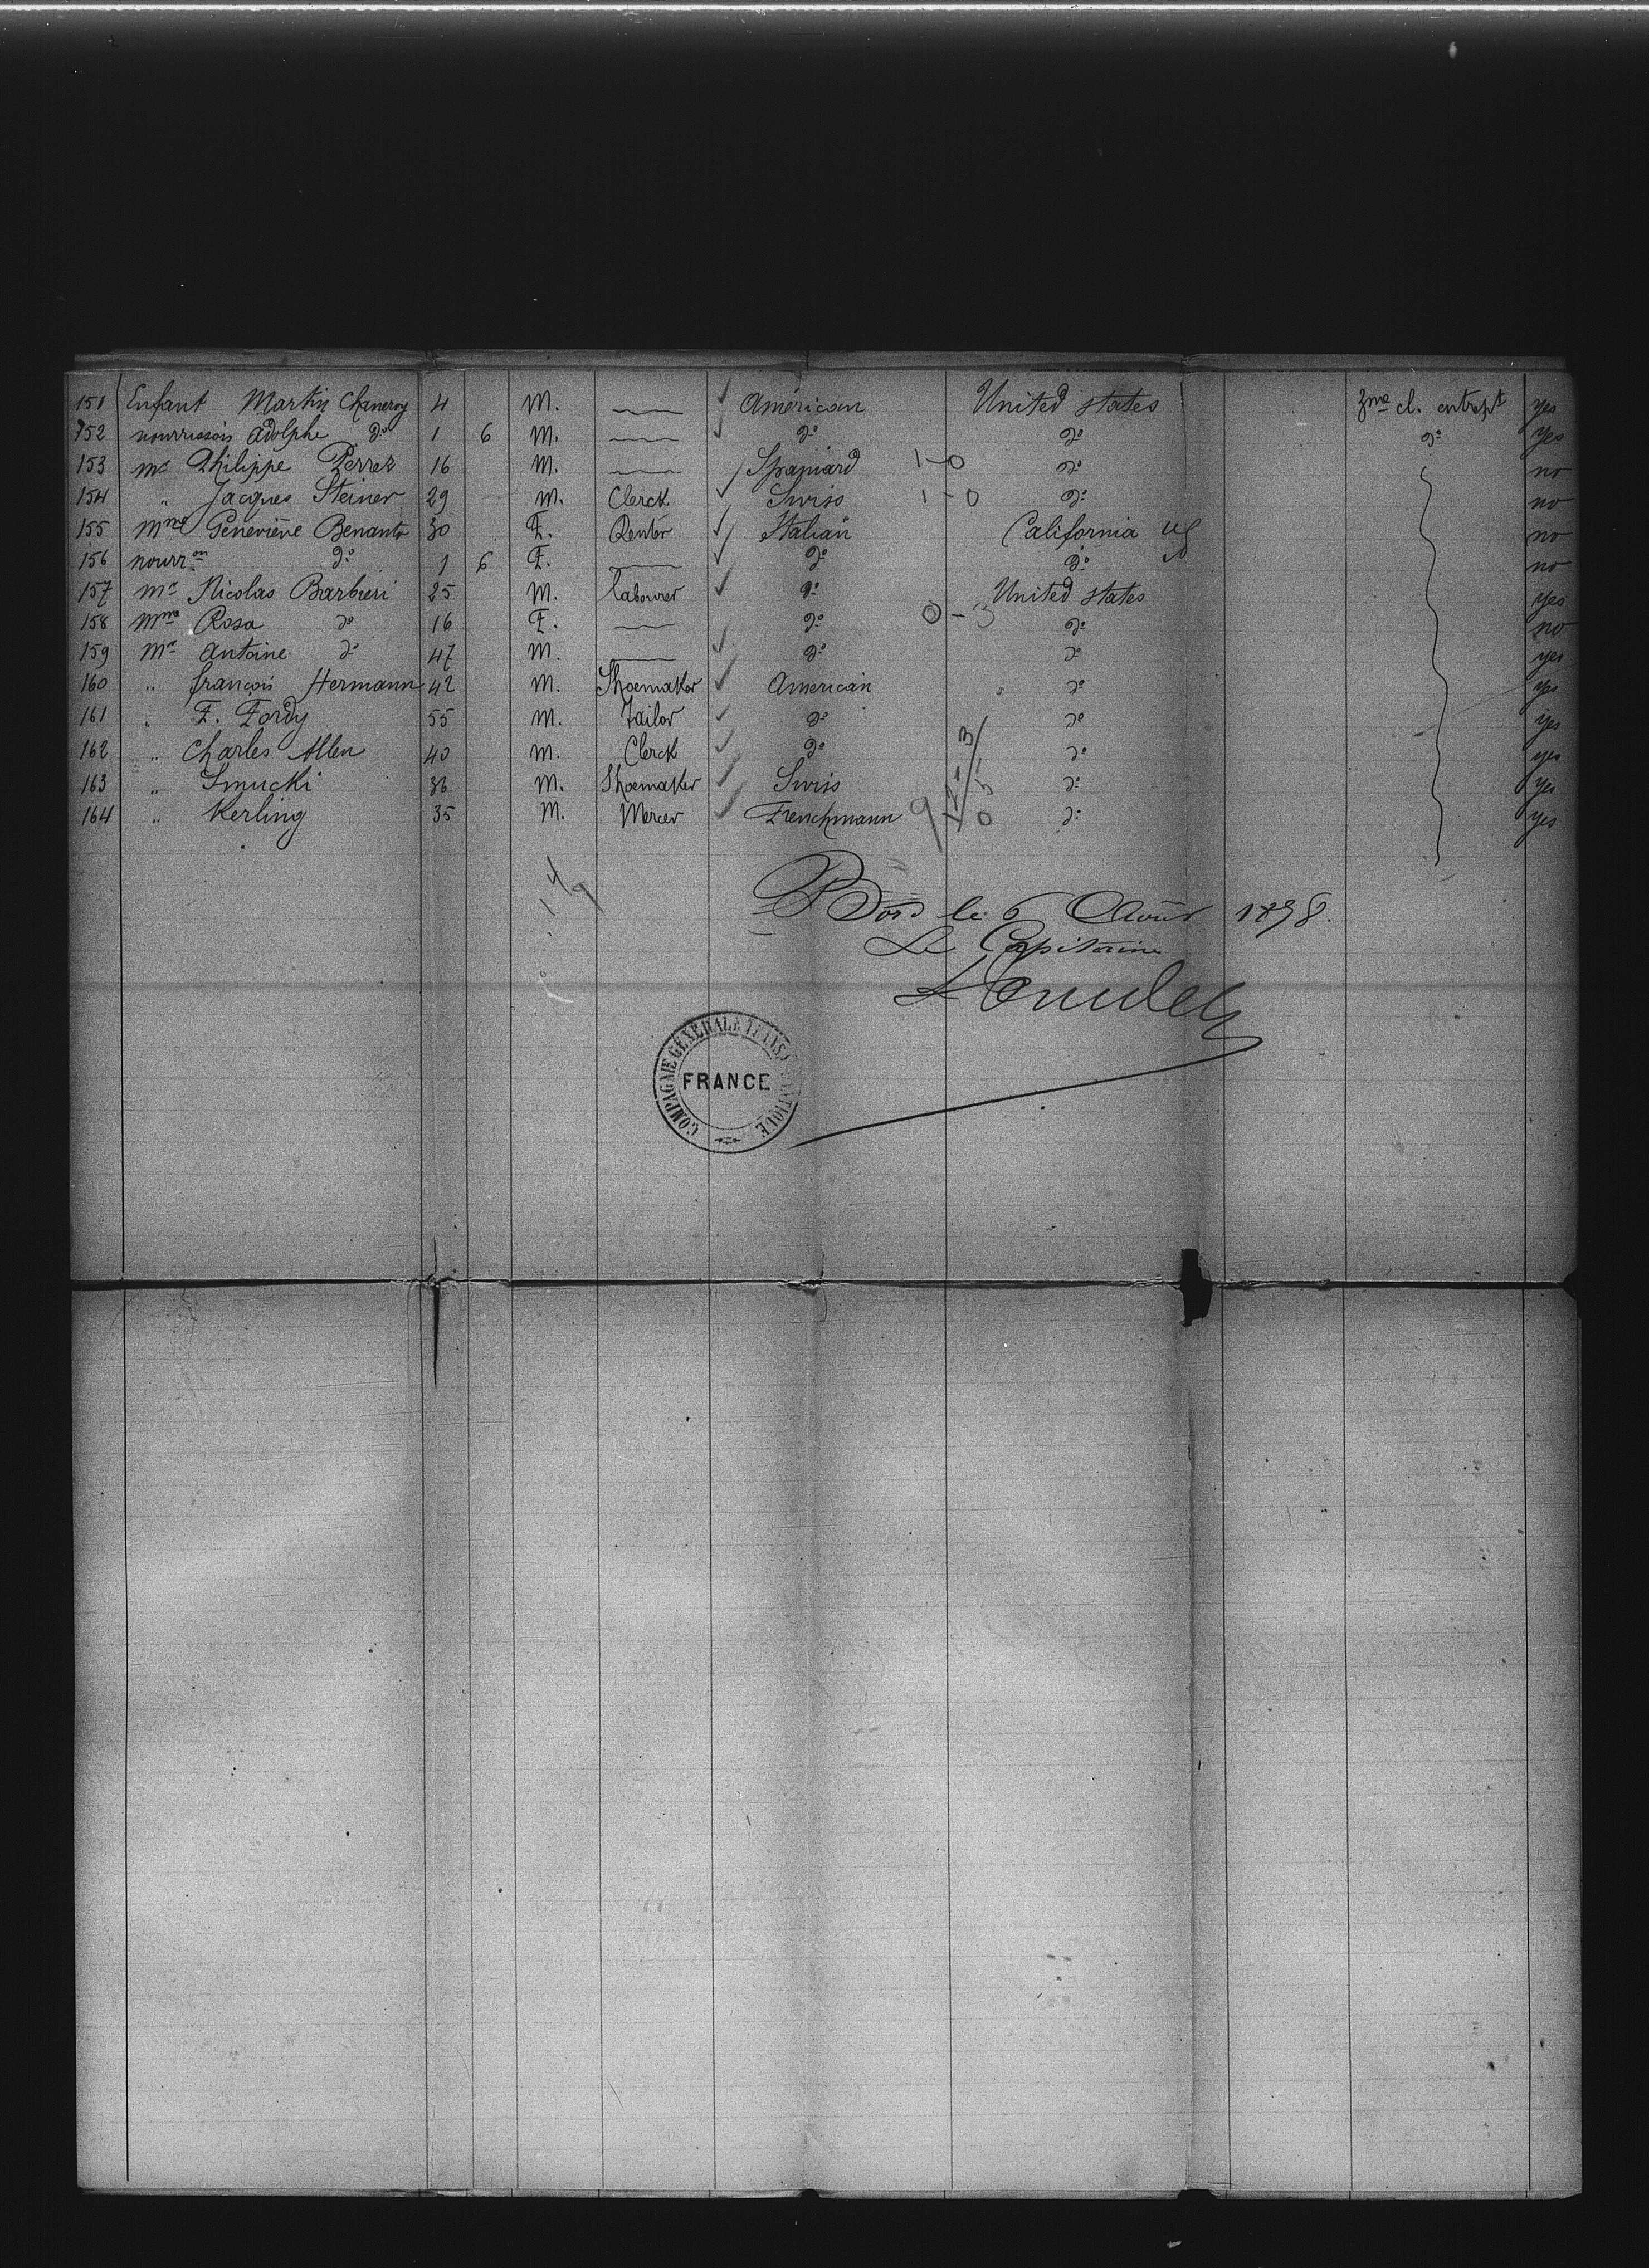 151 Enfant Martin Chaneroy 4 M. American United states 3me cl. entrept yes
152 nourrisson Adolphe do 1 6 M. do do do yes
153 Mr Philippe Perrez 16 M. Spaniard 1-0 do no
154 " Jacques Steiner 29 M. Clerck Swiss 1-0 do no
155 Mme Geneviève Benanto 30 F. Renter Italian California no
156 nourron do 1 6 F. do do no
157 Mr Nicolas Barbieri 25 M. labourer do United states yes
158 Mme Rosa do 16 F. do 0-3 do no
159 Mr Antoine do 47 M. do do yes
160 " françois Hermann 42 M. Shoemaker American do yes
161 " F. Fordy 55 M. Tailor do do yes
162 " Charles Allen 40 M. Clerck do do yes
163 " Smucki 36 M. Shoemaker Swiss do yes
164 " Kerling 35 M. Mercer Frenchmann do yes
Bord le 6 Août 1898.
Le Capitaine
COMPAGNIE GÉNÉRALE TRANSATLANTIQUE
FRANCE